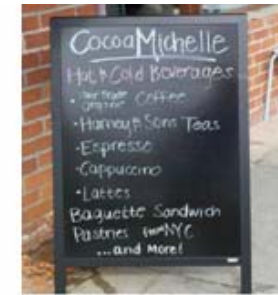 CocoaMichelle
Hot & Cold Beverages
• Fair Trade Organic Coffee
• Harney & Sons Teas
• Espresso
• Cappuccino
• Lattes
Baguette Sandwich
Pastries from NYC
...and More!